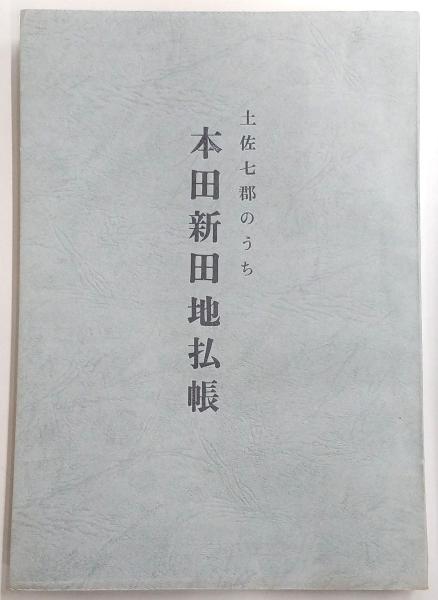 土佐七郡のうち
本田新田地払帳